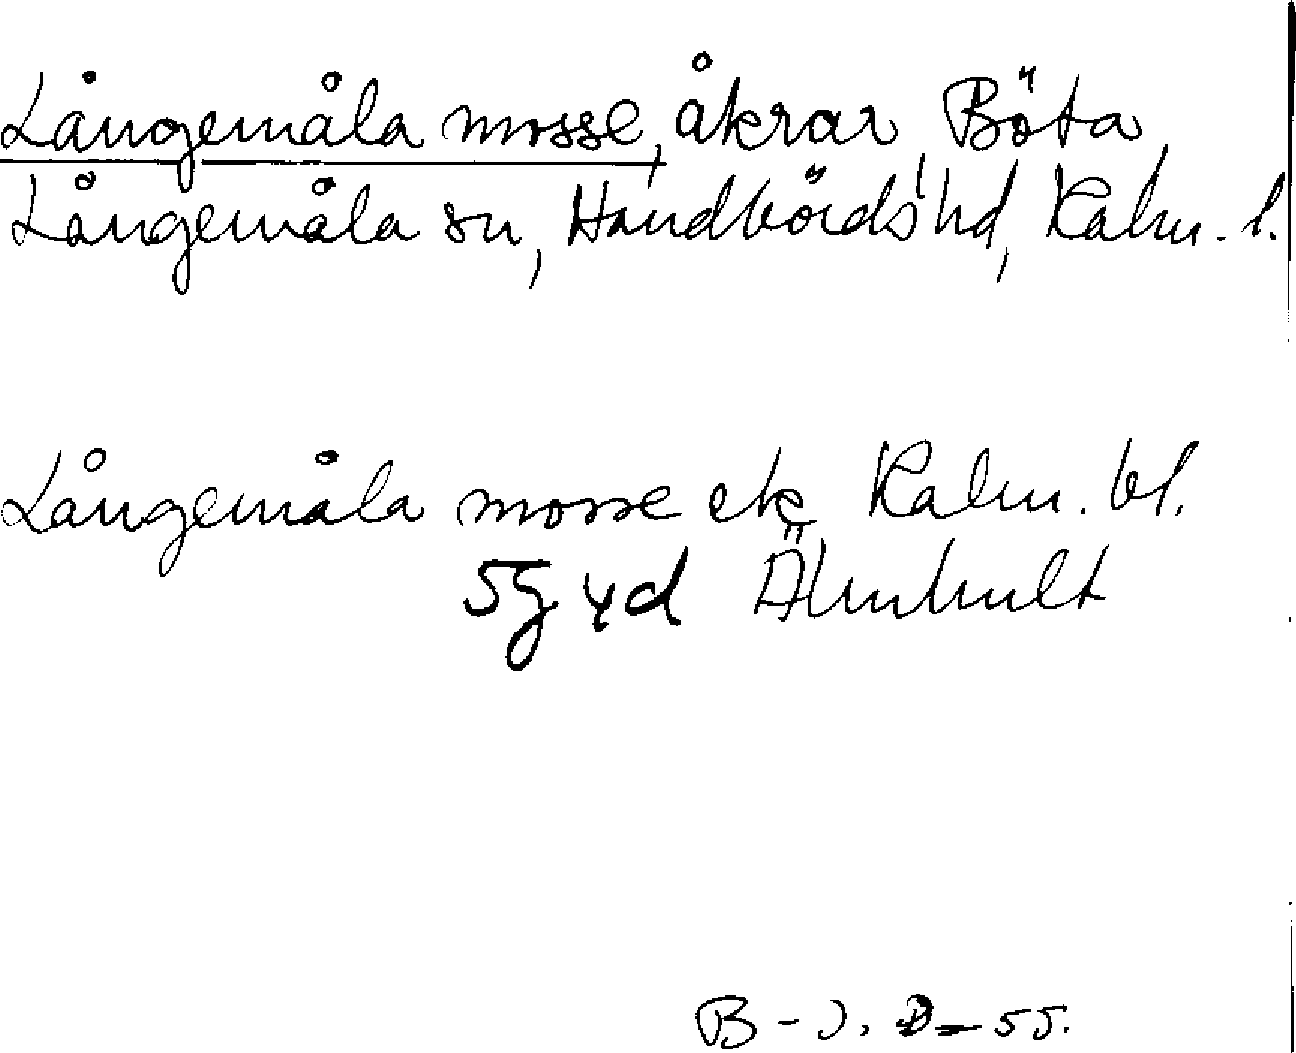 Långemåla mosse, åkrar, Böta,
Långemåla sn, Handbörds hd, Kalm. l.
Långemåla mosse ek Kalm. bl.
5g yd Älmhult
B-J. D-55.